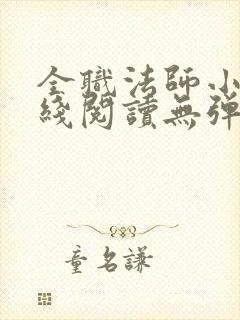 全職法師小
綫閱讀無彈
童名謙